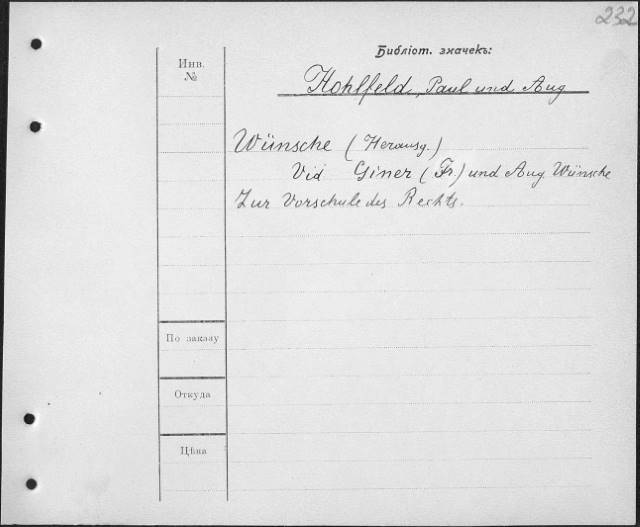 232
Библіот. значекъ:
Инв.
№
Hohlfeld, Paul und Aug
Wünsche (Herausg.)
Vid Giner (Fr.) und Aug Wünsche
Zur Vorschule des Rechts.
По заказу
Откуда
Цѣна